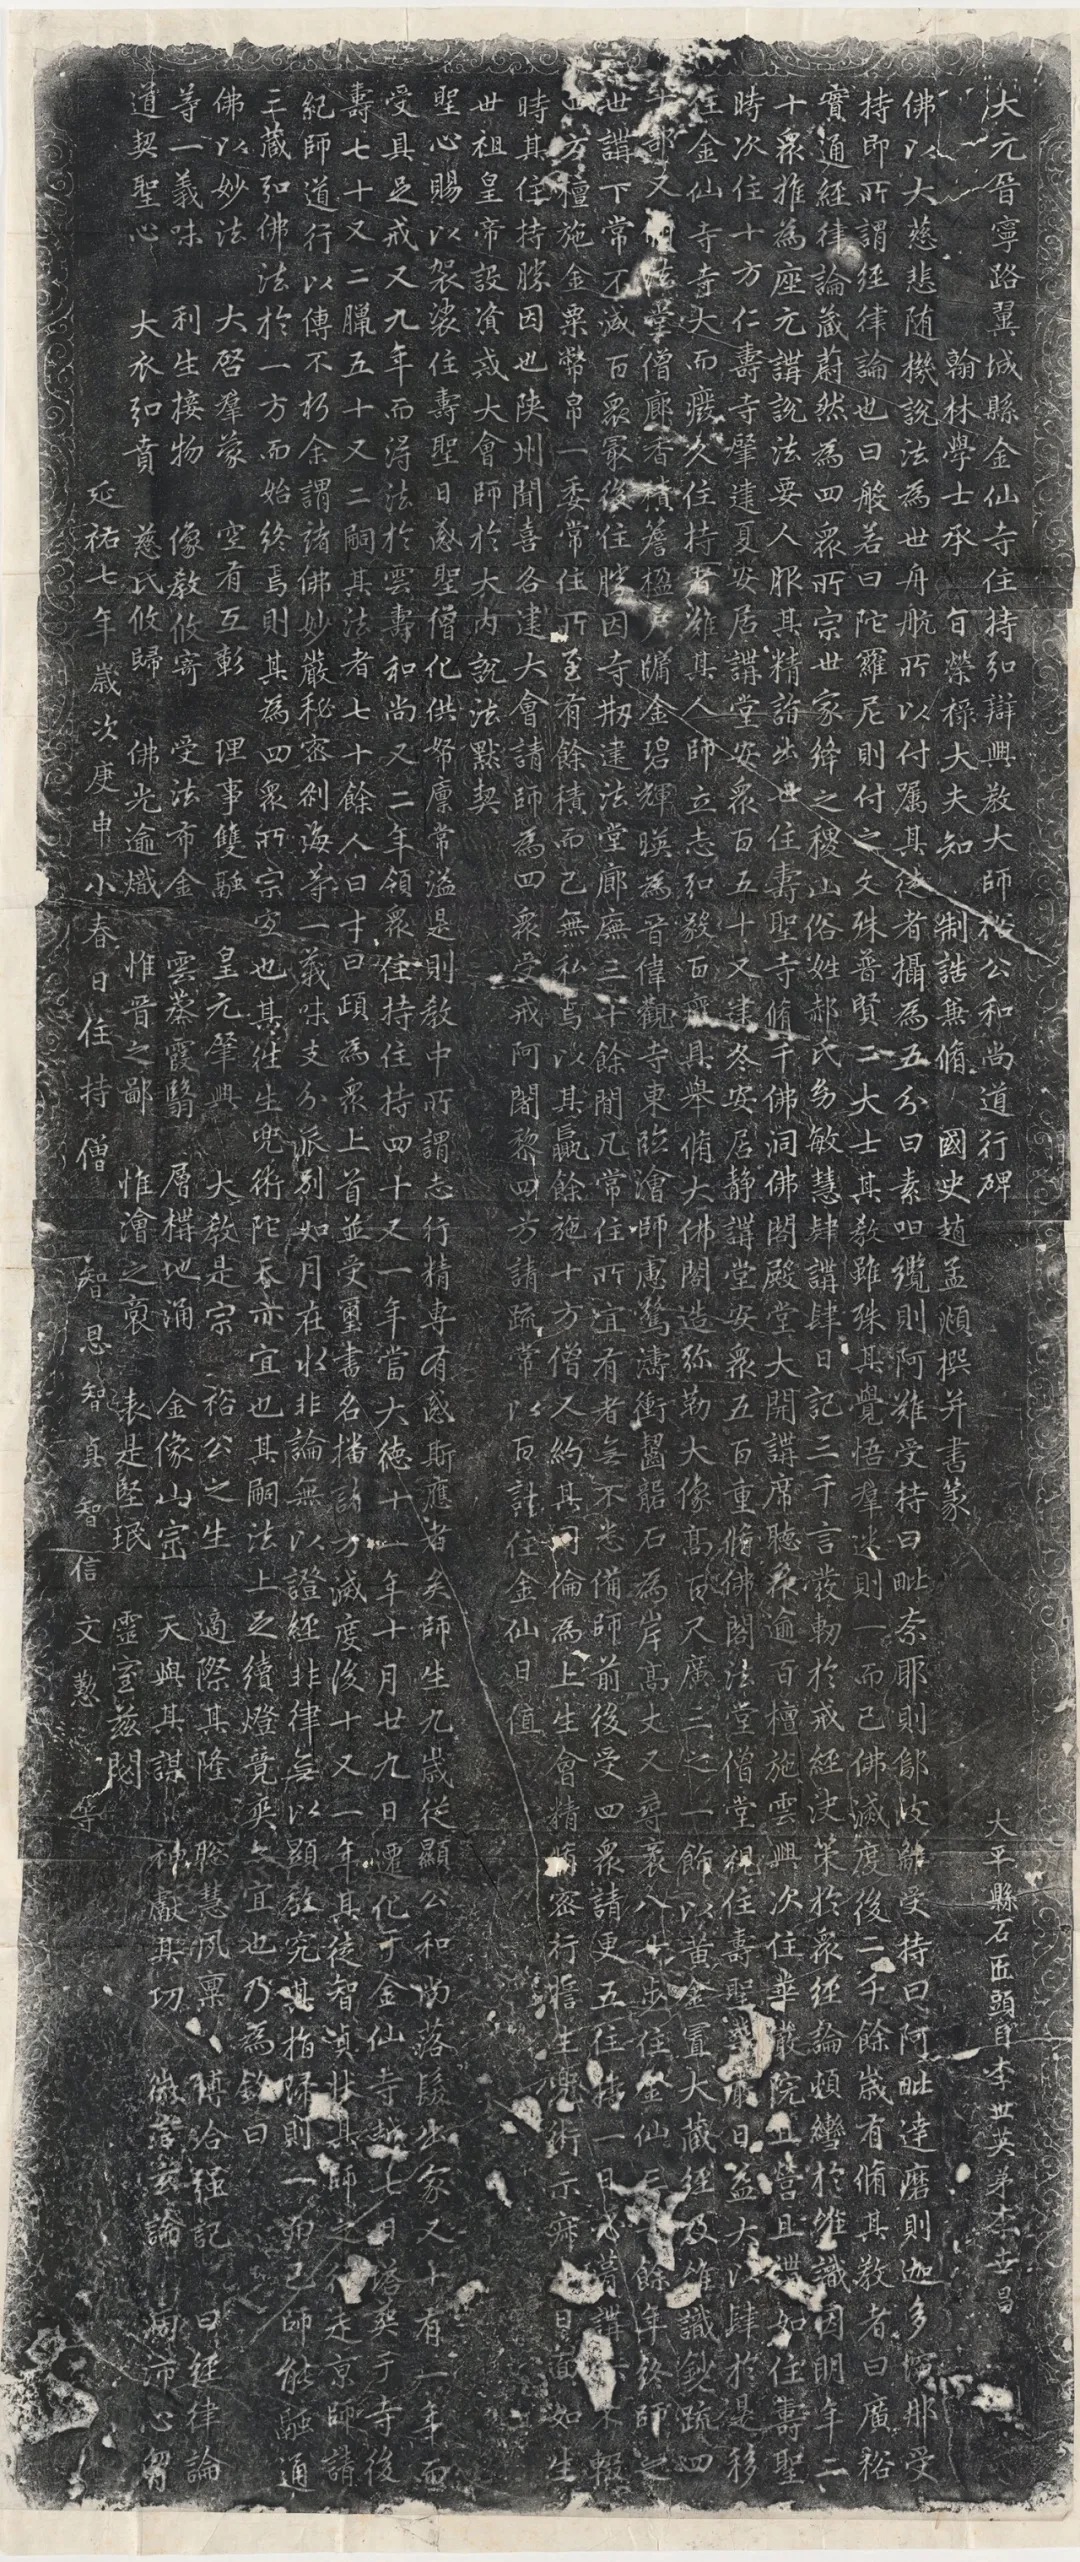 大元晉寧路翼城縣金仙寺住持弘辯興教大師裕公和尚道行碑 大平縣石匠頭目李世英弟李世昌
翰林學士承旨榮祿大夫知制誥兼脩國史趙孟頫撰并書篆
佛以大慈悲随機說法為世舟航所以付嘱其徒者攝為五分曰素呾纜則阿難受持曰毗奈耶則鄔波離受持曰阿毗達磨則迦多衍那受
持即所謂經律論也曰般若曰陀羅尼則付之文殊普賢二大士其教雖殊其覺悟羣迷則一而已佛滅度後二千餘歲有脩其教者曰廣裕
實通經律論藏蔚然為四眾所宗世家絳之稷山俗姓郝氏幼敏慧肆講肆日記三千言發軔於戒經決策於眾經論頓轡於維識因明年二
十眾推為座元講說法要人服其精詣出世住壽聖寺脩千佛洞佛閣殿堂大開講席聽眾逾百檀施雲興次住華嚴院且營且講如住壽聖
時次住十方仁壽寺肇建夏安居講堂安眾百五十又建冬安居静講堂安眾五百重脩佛閣法堂僧堂規住壽聖華嚴日益大以肆於是移
住金仙寺寺大而癈久住持者難其人師立志弘發百癈具舉脩大佛閣造弥勒大像髙百尺廣三之一飾以黄金置大藏經及維識鈔疏四
十部又法堂僧廊香積簷楹户牖金碧輝暎為晉偉觀寺東臨澮師慮驚濤衝齧甃石為岸髙丈又尋袤八十步住金仙三十餘年終師之
世講下常不減百眾最後住勝因寺剏建法堂廊廡三十餘間凡常住所宜有者無不悉備師前後受四眾請更五住持一日必蒞講不輟
四方檀施金粟幣帛一委常住所至有餘積而己無私焉以其贏餘施十方僧又約其同倫為上生會精脩密行膽生兜術示寂日面如生
時其住持勝因也陕州聞喜各建大會請師為四眾受戒阿闍黎四方請疏常以百計住金仙日值
世祖皇帝設資戒大會師於大内說法黙契
聖心賜以袈裟住壽聖日感聖僧化供帑廪常溢是則教中所謂志行精專有感斯應者矣師生九歲從顯公和尚落髮出家又十有一年而
受具足戒又九年而得法於雲壽和尚又二年領眾住持住持四十又一年當大德十一年十月廿九日遷化于金仙寺越七日塔葬于寺後
壽七十又二臘五十又二嗣其法者七十餘人曰才曰頤為眾上首並受璽書名播諸方滅度後十又一年其徒智滇狀其師之行走京師請
紀師道行以傳不朽余謂諸佛妙嚴秘密刹海等一義味支分派別如月在水非論無以證經非律無以顯教究其指歸則一而已師能融通
三藏弘佛法於一方而始終焉則其為四眾所宗宜也其往生兜術陀天亦宜也其嗣法上足續燈竟爽又宜也乃為銘曰
佛以妙法 大啓羣蒙 空有互彰 理事雙融 皇元肇興 大教是宗 裕公之生 適際其隆 聡慧夙稟 博洽强記 曰經律論
等一義味 利生接物 像教攸寄 受法布金 雲蒸霞翳 層構地涌 金像山崇 天與其謀 神獻其功 微言玄論 洞沛心胷
道契聖心 大衣弘賁 慈氏攸歸 佛光逾熾 惟晉之鄙 惟澮之裔 表是堅珉 靈室兹閟
延祐七年歲次庚申小春日住持僧 智恩 智貞 智信 文懃 等